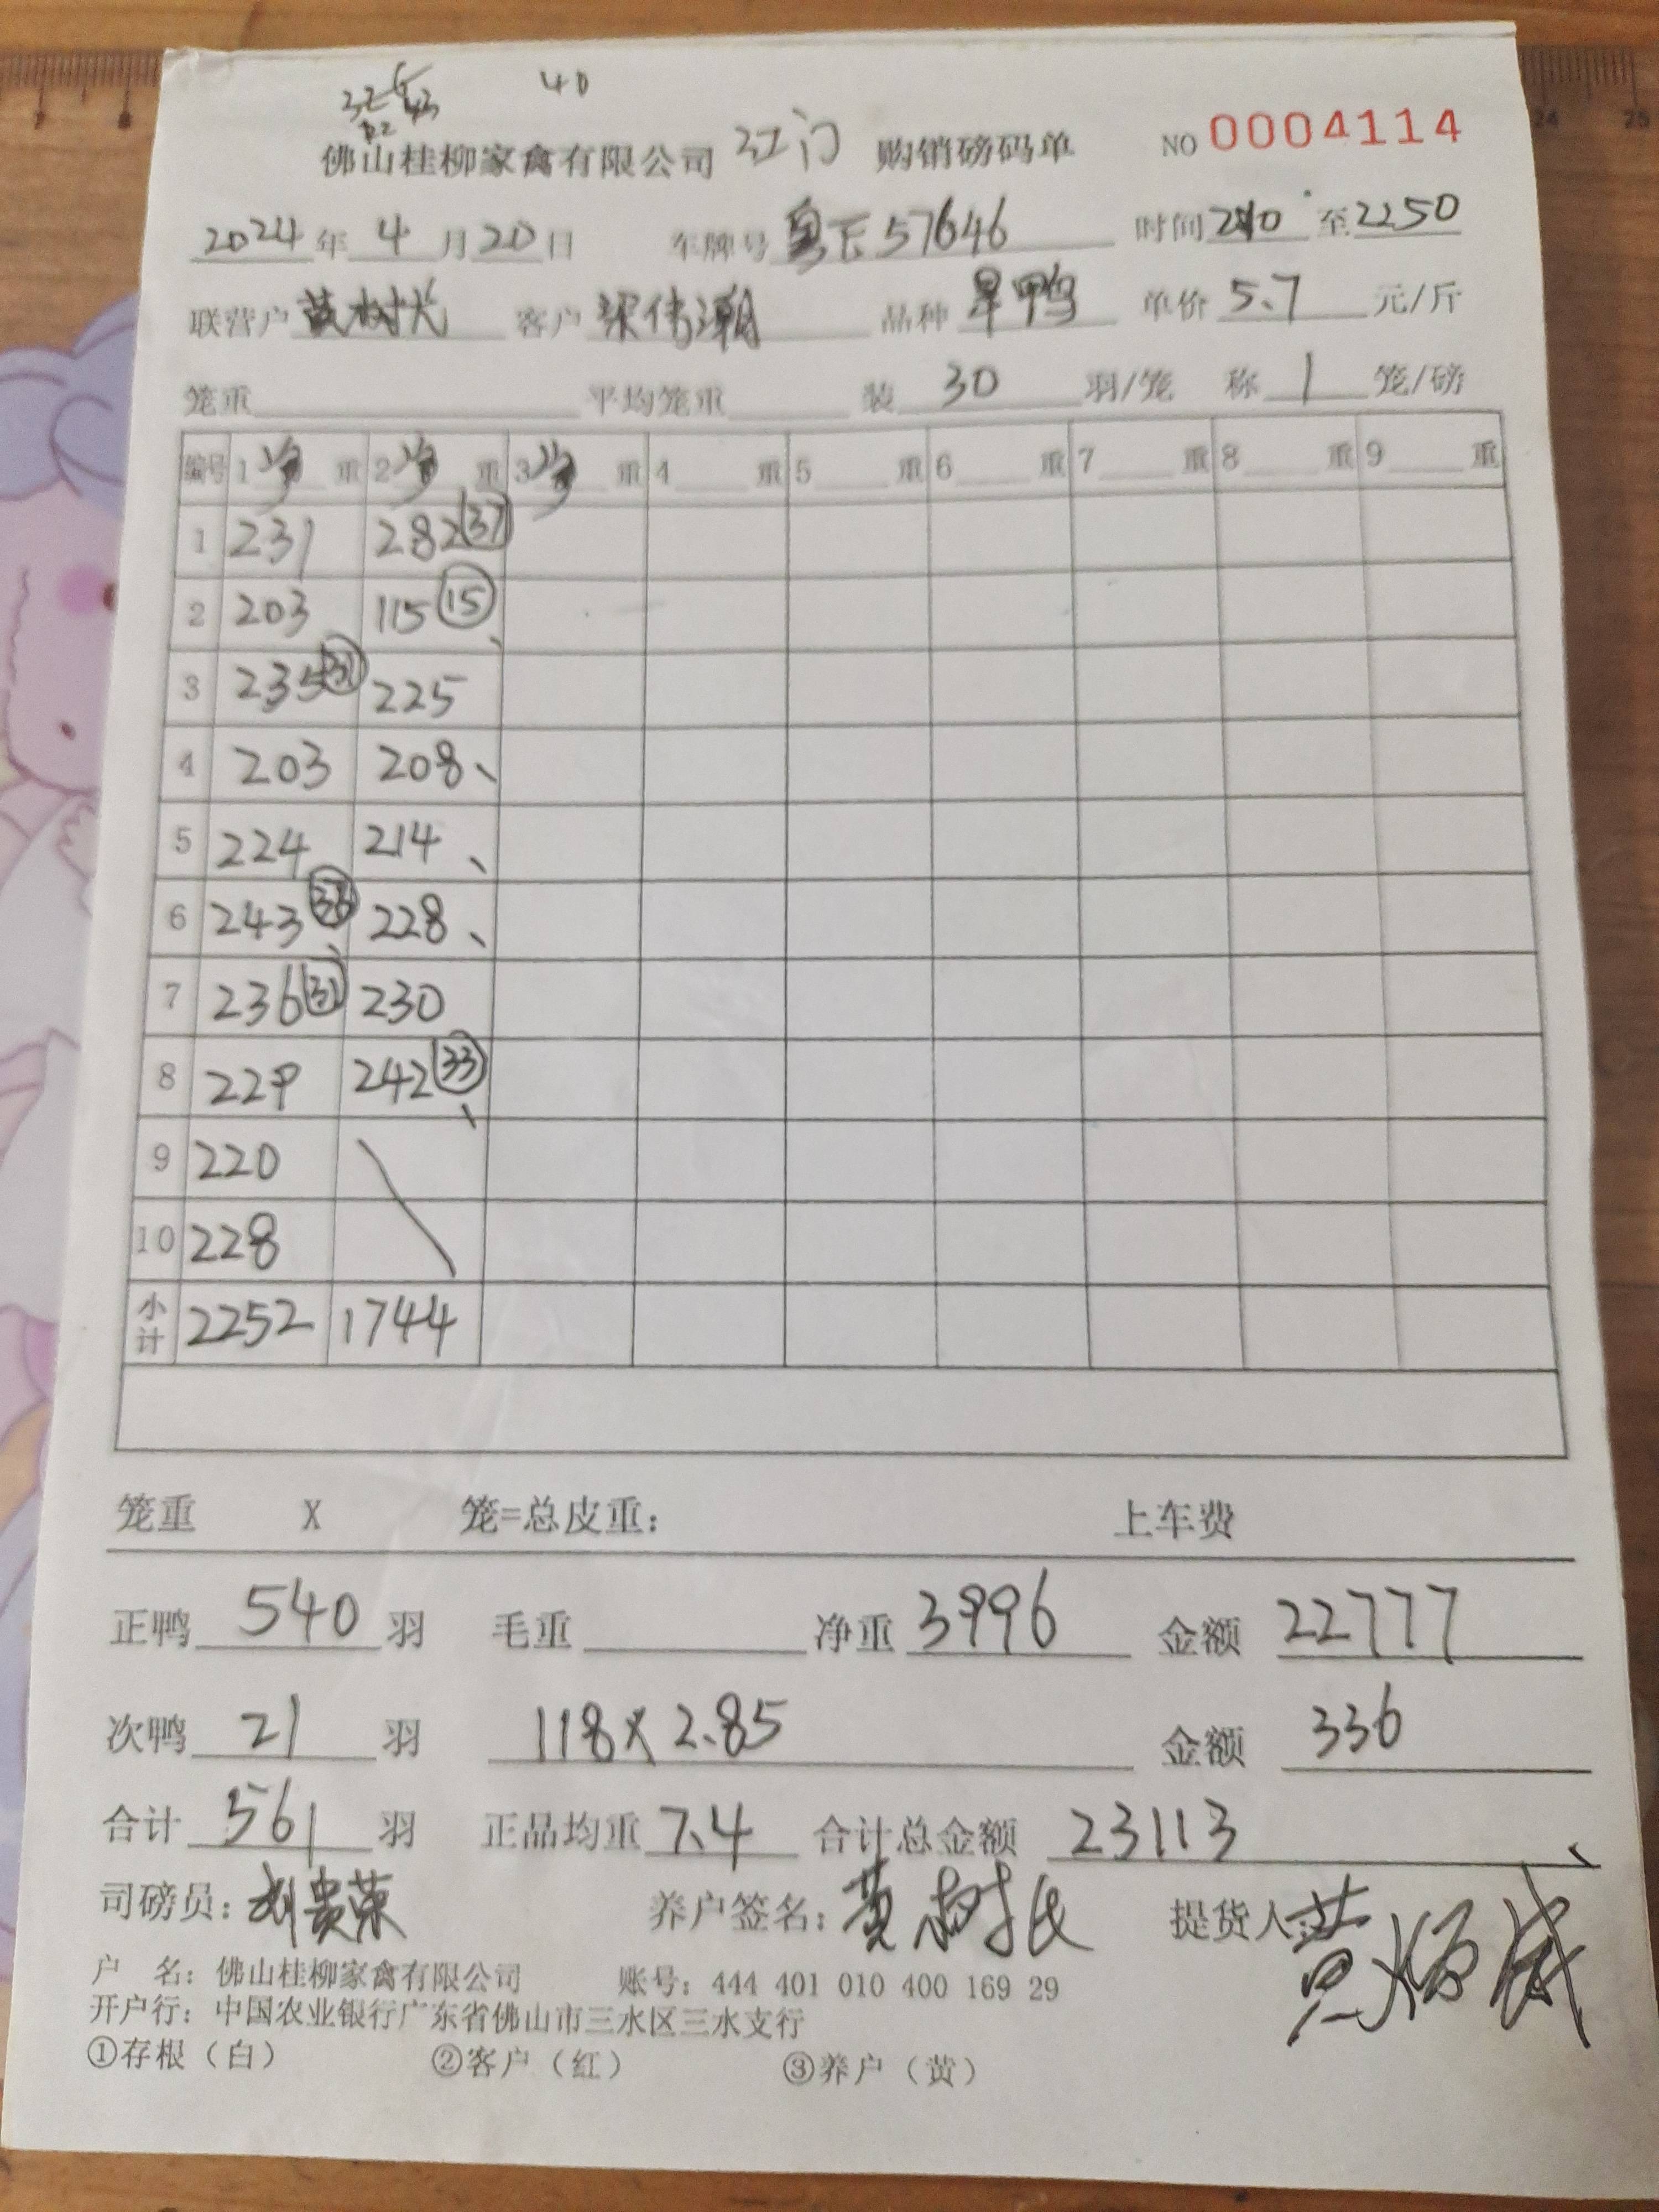 40
佛山桂柳家禽有限公司 江门 购销磅码单 NO 0004114
2024年 4月20日 车牌号 粤E57646 时间 至2250
联营户 黄树 客户 梁伟潮 品种 旱鸭 单价 5.7 元/斤
笼重 平均笼重 装 30 羽/笼 称 1 笼/磅
编号 1 净 重 2 净 重 3 净 重 4 重 5 重 6 重 7 重 8 重 9 重
1 231 282 37
2 203 115 15
3 235 31 225
4 203 208
5 224 214
6 243 33 228
7 236 31 230
8 229 242 33
9 220
10 228
小计 2252 1744
笼重 X 笼=总皮重: 上车费
正鸭 540 羽 毛重 净重 3996 金额 22777
次鸭 21 羽 118×2.85 金额 336
合计 561 羽 正品均重 7.4 合计总金额 23113
司磅员: 刘贵荣 养户签名: 黄树 提货人:
户 名: 佛山桂柳家禽有限公司 账号: 444 401 010 400 169 29
开户行: 中国农业银行广东省佛山市三水区三水支行
①存根（白） ②客户（红） ③养户（黄）